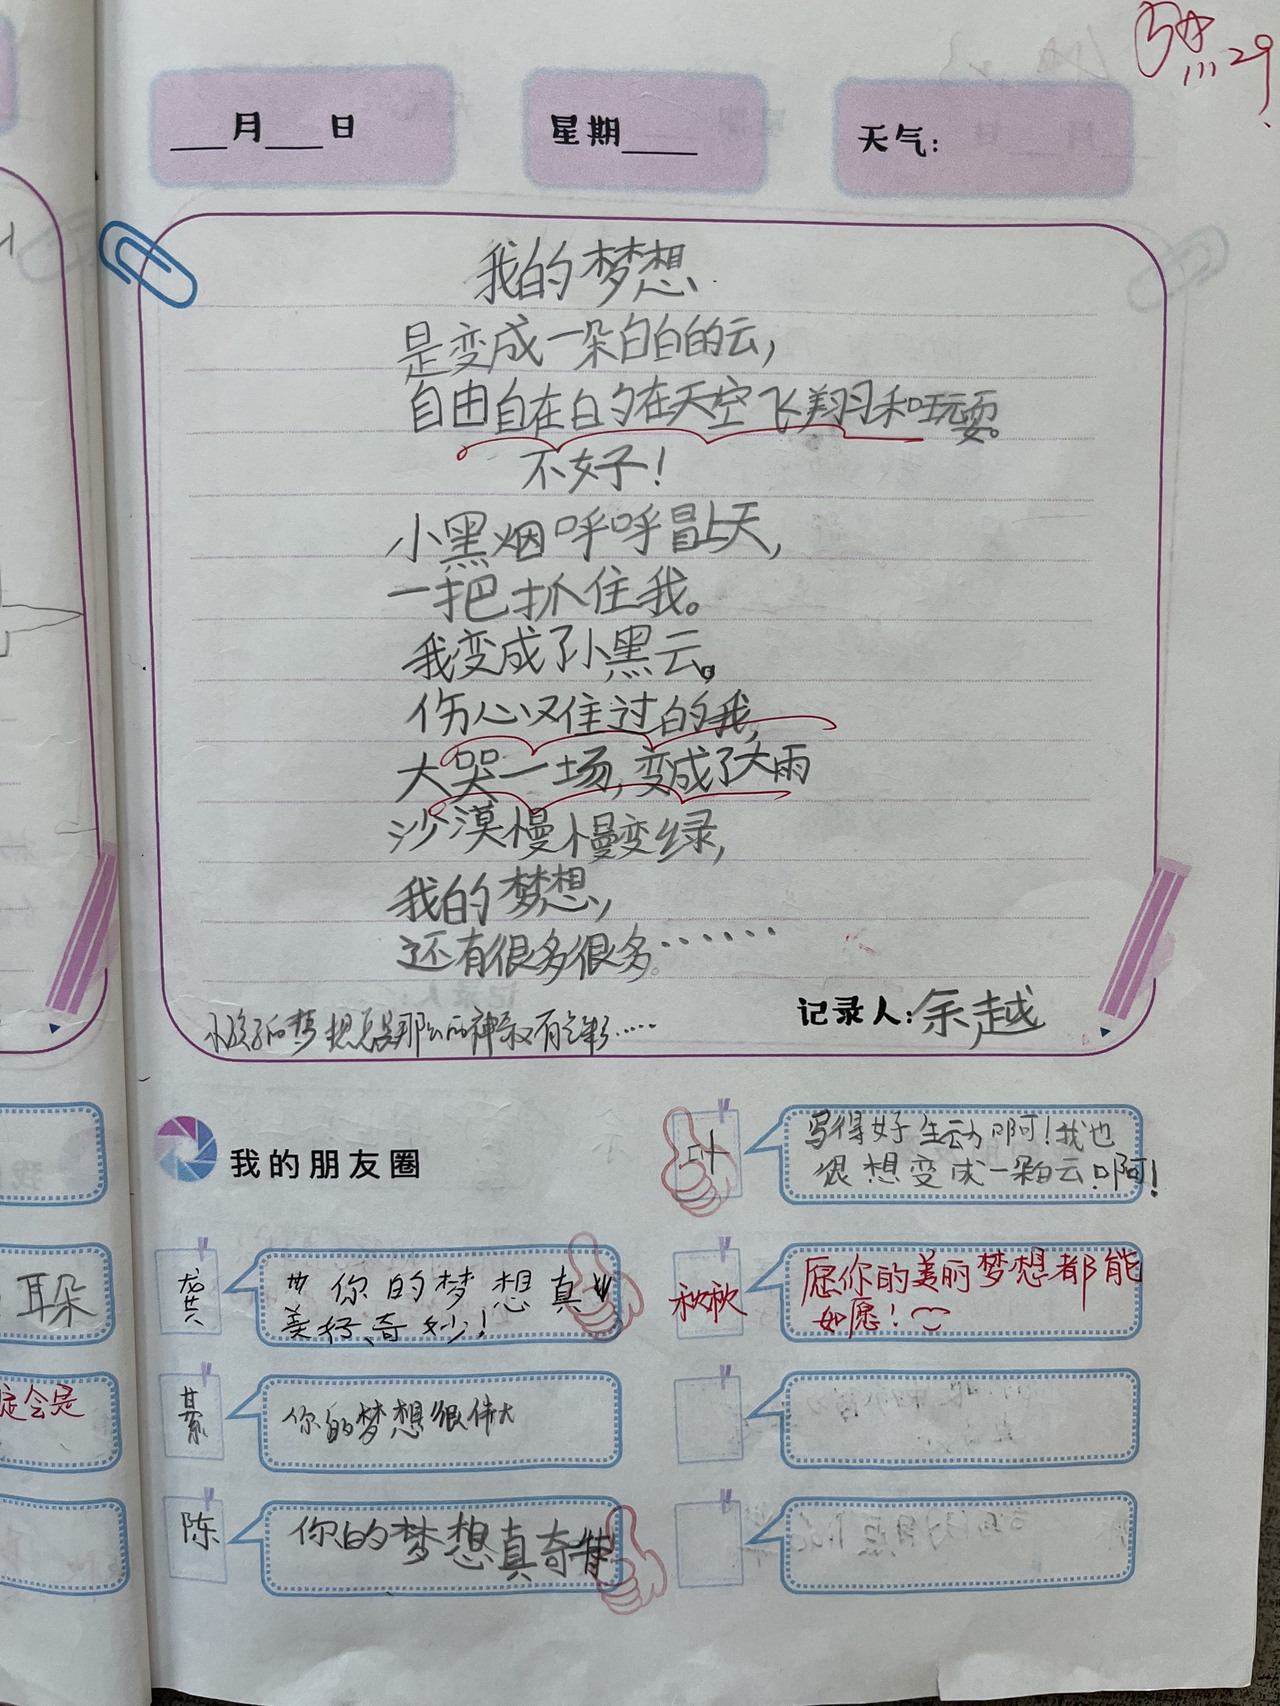 29
月 日
星期
天气：
我的梦想
是变成一朵白白的云，
自由自在白勺在天空飞翔和玩耍。
不好！
小黑烟呼呼冒上天，
一把抓住我。
我变成了小黑云。
伤心又住过的我，
大哭一场，变成了大雨
沙漠慢慢变绿，
我的梦想，
还有很多很多……
记录人：余越
小孩子的梦想总是那么的神
我的朋友圈
叶
写得好生动啊！我也
很想变成一朵白云啊！
龚
你的梦想真
美好、奇妙！
秋秋
愿你的美丽梦想都能
如愿！
綦
你的梦想很伟大
陈
你的梦想真奇
耳朵
定会是